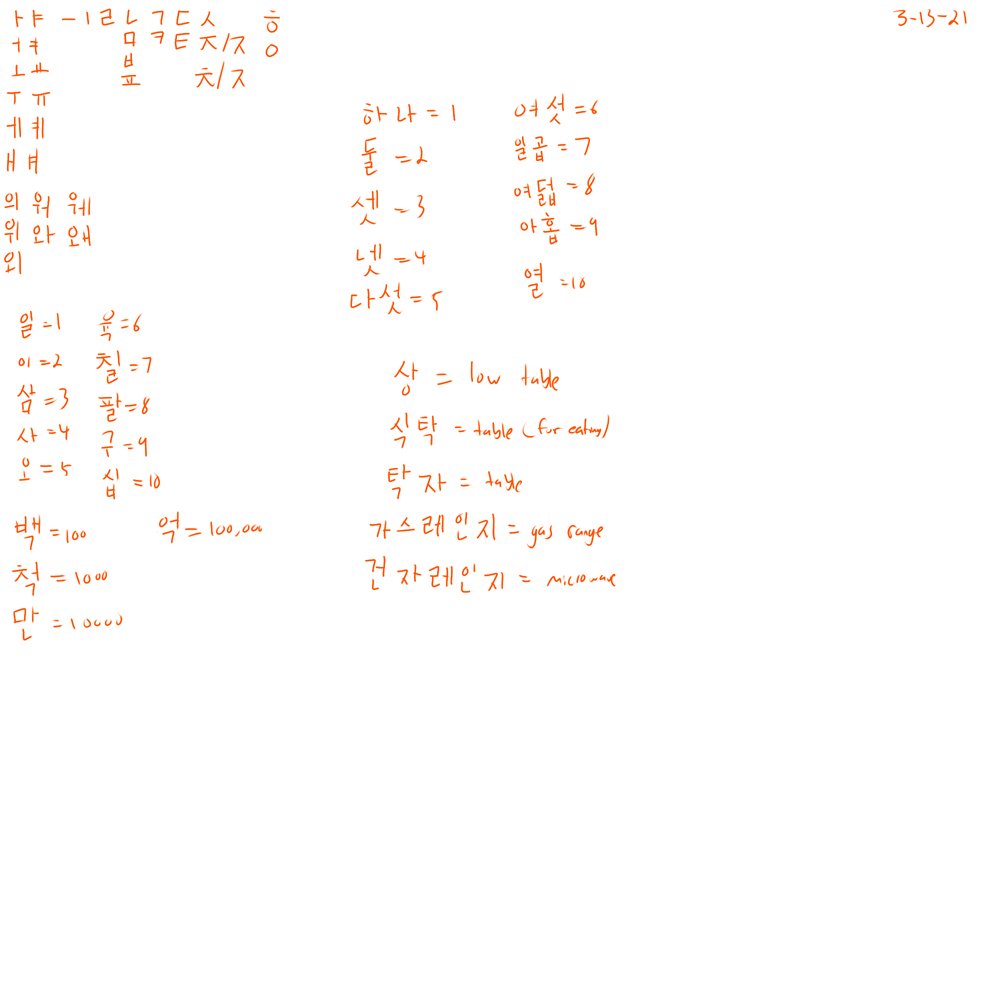 3-13-21
ㅏ ㅑ ㅡ ㅣ ㄹ ㄴ ㄱ ㄷ ㅅ ㅎ
ㅓ ㅕ ㅁ ㅋ ㅌ ㅈ/ㅈ ㅇ
ㅗ ㅛ ㅂ
ㅍ ㅊ/ㅈ
ㅜ ㅠ
ㅔ ㅖ
ㅐ ㅒ
의 워 웨
위 와 왜
외
일=1 육=6
이=2 칠=7
삼=3 팔=8
사=4 구=9
오=5 십=10
백=100 억=100,000
척=1000
만=10000
하나=1 여섯=6
둘=2 일곱=7
셋=3 여덟=8
넷=4 아홉=9
다섯=5 열=10
상 = low table
식탁 = table (for eating)
탁자 = table
가스레인지 = gas range
건자레인지 = microwave